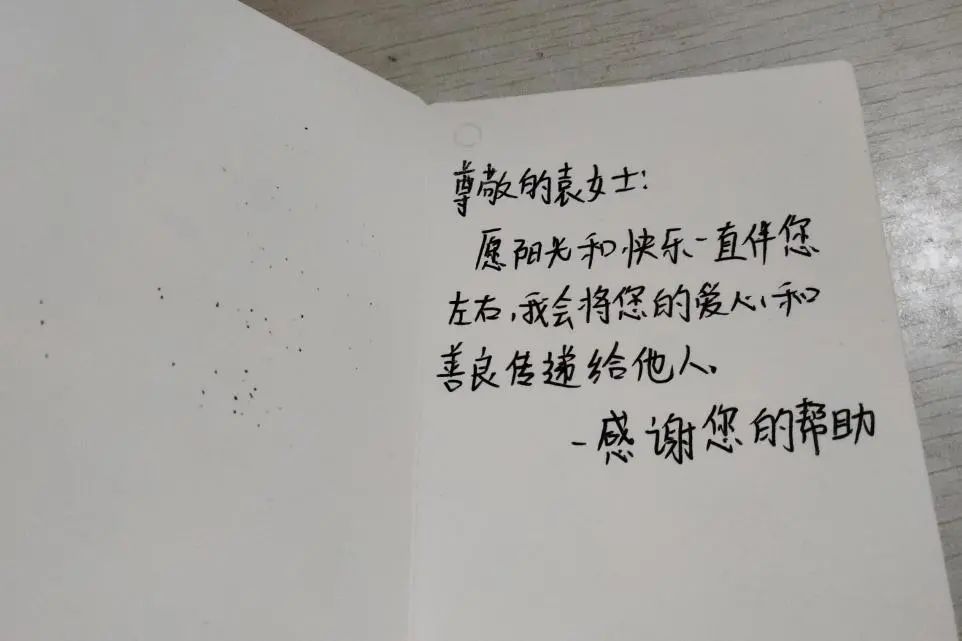 尊敬的袁女士:
愿阳光和快乐一直伴您
左右,我会将您的爱心和
善良传递给他人.
-感谢您的帮助